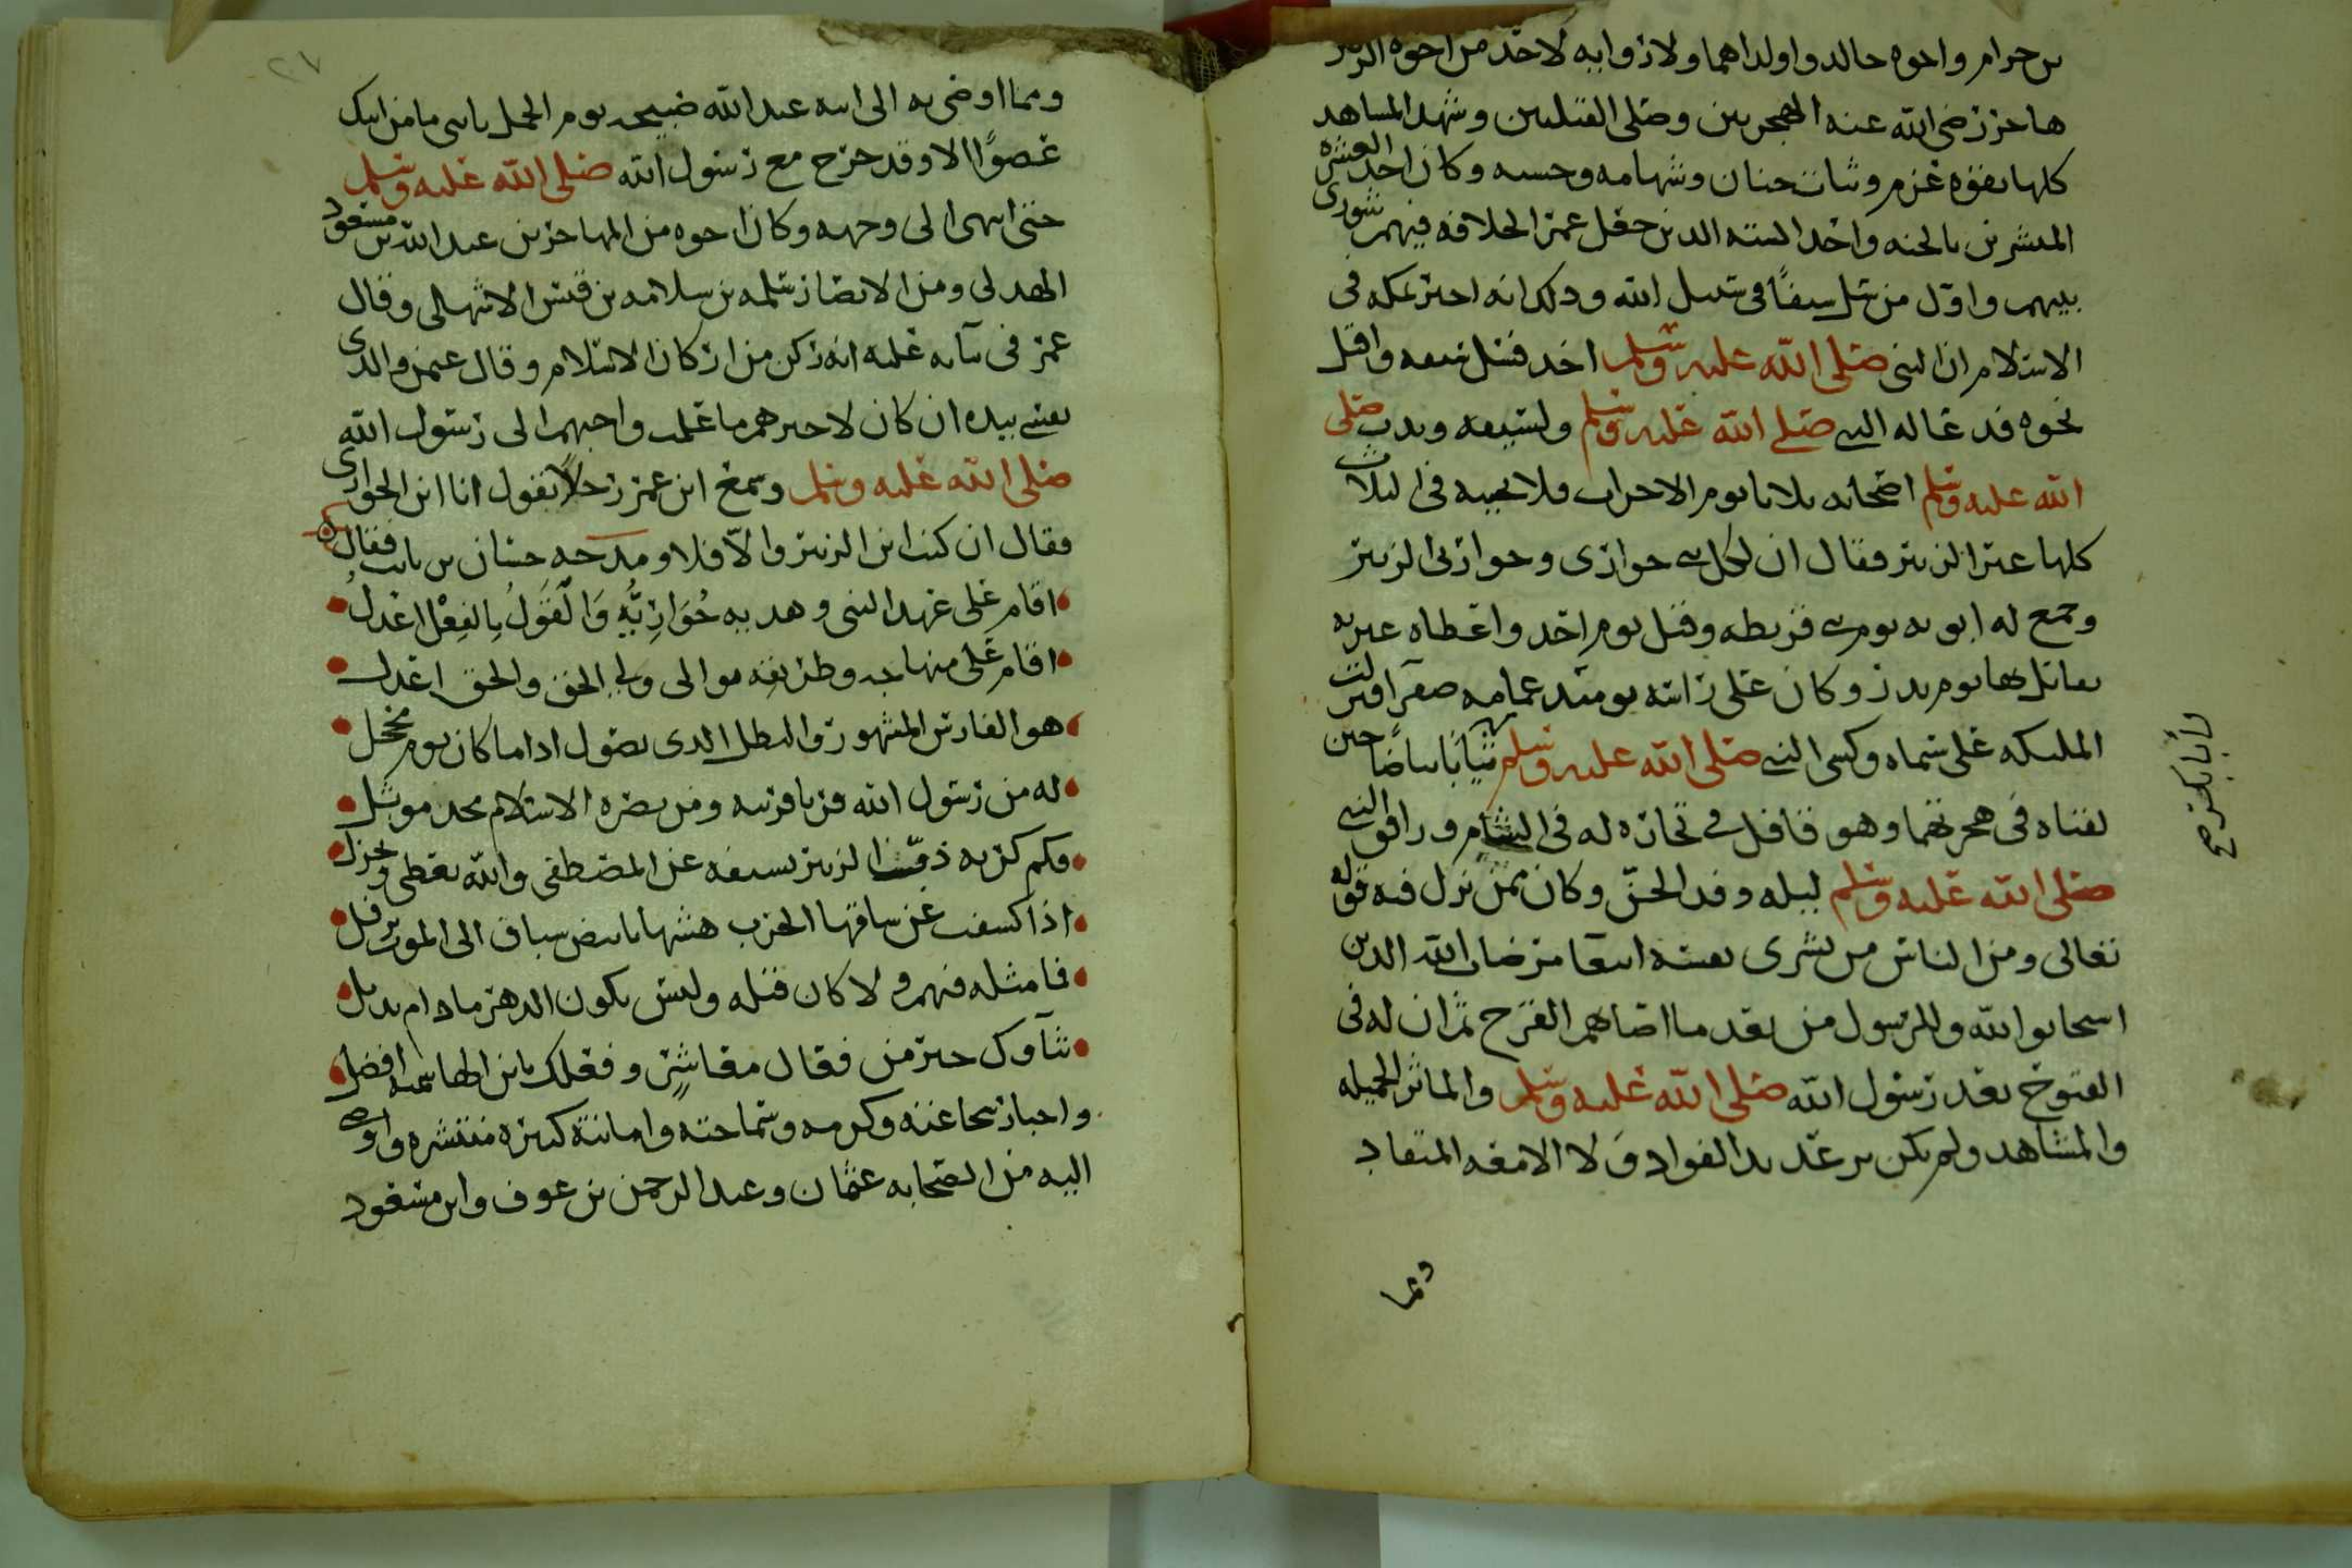 بن حرام واخوه خالد واولداهما ولا زوايه لاحد من اخوه الزبير
هاجر رضي الله عنه الهجرتين وصلى القبلتين وشهد المشاهد
كلها بقوه عزم وثبات جنان وشهامه وحسبه وكان احد العشره
المبشرين بالجنه واحد السته الذين جعل عمر الخلافه فيهم شورى
بينهم واول من سل سيفا في سبيل الله وذلك انه اخبر بمكه في
الاسلام ان النبي صلى الله عليه وسلم اخذ فسل سيفه واقبل
نحوه فدعا له النبي صلى الله عليه وسلم ولسيفه وندب صلى
الله عليه وسلم اصحابه ثلاثا يوم الاحزاب فلا يجيبه في الثلاث
كلها غير الزبير فقال ان لكل نبي حواري وحواريي الزبير
وجمع له ابويه يوم بني قريظه وقيل يوم احد واعطاه عنزه
يقاتل بها يوم بدر وكان على راسه يومئذ عمامه صفرا فنزلت
الملىكه على سيماه وكسى النبي صلى الله عليه وسلم ثيابا بياضا حين
لقياه في هجرتهما وهو قافل في تجاره له في الشام ورافق النبي
صلى الله عليه وسلم ليله وفد الجن وكان ممن نزل فيه قوله
تعالى ومن الناس من يشري نفسه ابتغا مرضات الله الذين
استجابوا لله وللرسول من بعد ما اصابهم القرح ثم ان له في
الفتوح بعد رسول الله صلى الله عليه وسلم والماثر الجميله
والمشاهد ولم يكن يرعد بدا الفواد ولا الامعه المنقاد
ومما
لأبا بكر
٢٧
ومما اوصى به الى ابنه عبد الله صبيحه يوم الجمل يا بني ما من ابيك
عضوا الا وقد جرح مع رسول الله صلى الله عليه وسلم
حتى انتهى الى وجهه وكان اخوه من المهاجرين عبد الله بن مسعود
الهذلي ومن الانصار سلمه بن سلامه بن قيس الاشهالي وقال
عمر في ثنايه عليه انه ركن من اركان الاسلام وقال عثمن والذي
نفسي بيده ان كان لاخيرهم ما علمت واحبهم الى رسول الله
صلى الله عليه وسلم وسمع ابن عمر رجلا يقول انا ابن الحواري
فقال ان كنت ابن الزبير والا فلا ومدحه حسان بن ثابت فقال
اقام على عهد النبي وهديه حواريه والقول بالفعل اعدل
اقام على منهاجه وطريقه موالي ولي الحق والحق اعدل
هو الفارس المشهور والبطل الذي يصول اذا ما كان يوم محجل
له من رسول الله قربا قريبه ومن نصره الاسلام مجد موثل
فكم كربه ذب الزبير بسيفه عن المصطفى والله يعطي ويجزل
اذا كشفت عن ساقها الحرب هشها بابيض سباق الى الموت يرفل
فما مثله فيهم ولا كان قبله وليس يكون الدهر ما دام يذبل
ثناوك خير من فعال معاشر وفعلك يابن الهاشميه افضل
واخبار شجاعته وكرمه وسماحته وامانته كثيره منتشره واوصى
اليه من الصحابه عثمان وعبد الرحمن بن عوف وابن مسعود